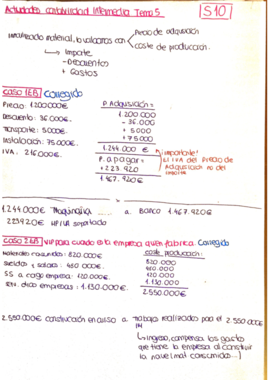 Actividades contabilidad Intermedia Tema 5
S10
Inmovilizado material, lo valoramos con
Precio de adquisición
coste de producción.
↳ Importe
- Descuentos
+ Gastos
CASO 16B Corregido
Precio: 1.200.000€
Descuento: 36.000€
Transporte: 5000€
Instalación: 75.000€
IVA. 216.000€
P. Adquisición =
1.200.000
- 36.000
+ 5000
+ 75000
1.244.000 €
P. a pagar =
+ 223.920
1.467.920€
¡importante!
El IVA del precio de
Adquisición no del
1.244.000€ Maquinaria
223920€ HP IVA soportado
a Banco 1.467.920€
CASO 24B NIP para cuando es la empresa quien fabrica Corregido
Materiales consumidos: 820.000€
Sueldos y salario: 480.000€
S.S a cargo empresa: 120.000€
Serv. dico empresas: 1.130.000€
coste producción:
820 000
480.000
120 000
1.130.000
2.550.000€
2.550.000€ construcción en curso a Trabajo realizados por el 2.550.000€
IM
↳ ingreso, compensa los gastos
que tiene la empresa al construir